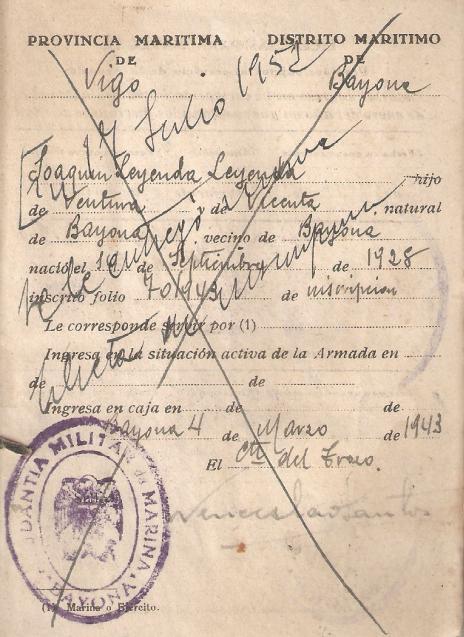 PROVINCIA MARITIMA DISTRITO MARITIMO
DE DE
Vigo Bayona
17 Julio 1952
Joaquin Leyenda Leyenda hijo
de Ventura y de Vicenta, natural
de Bayona, vecino de Bayona
nació el de Septiembre de 1928
inscrito folio 70/943 de inscripcion
se le entregó
libreta de
Le corresponde servir por (1)
Ingresa en la situación activa de la Armada en
de de
Ingresa en caja en de de
Bayona 4 de Marzo de 1943
El Cte del Trozo.
AYUDANTIA MILITAR de MARINA
BAYONA
(1) Marina o Ejército.